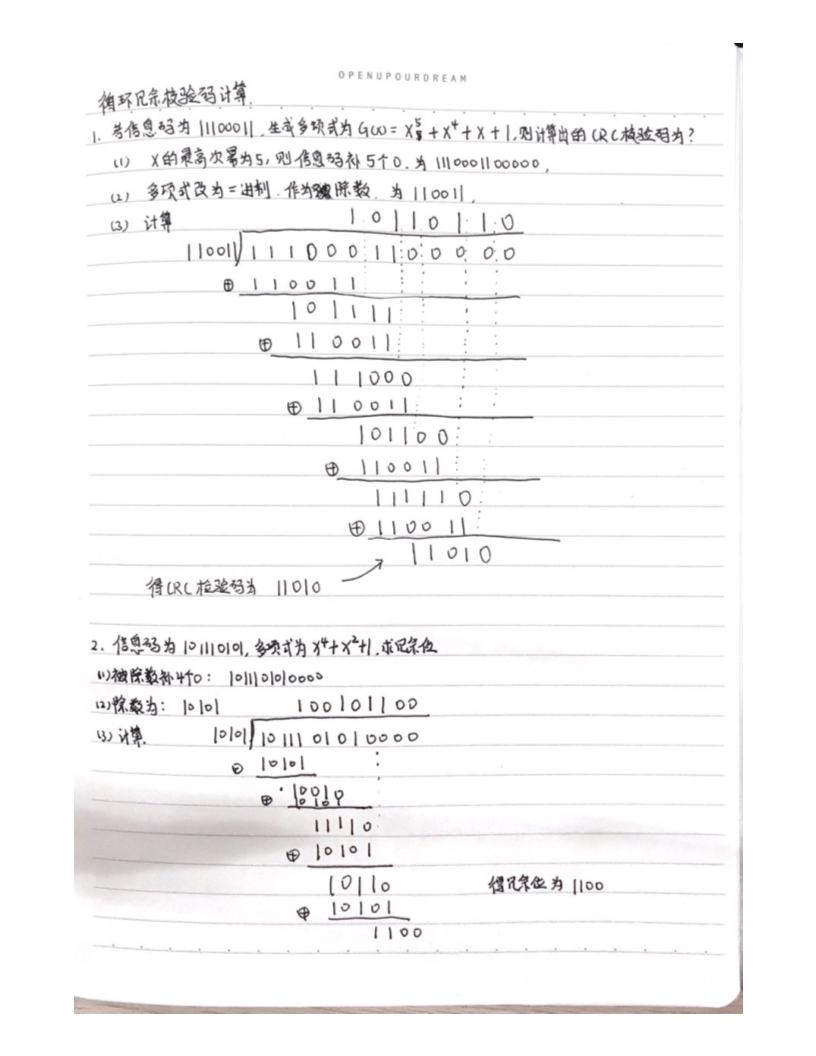 OPENUPOURDREAM
循环冗余校验码计算.
1. 若信息码为 11100011, 生成多项式为 G(x)= x⁵+x⁴+x+1, 则计算出的 CRC 校验码为?
(1) X的最高次幂为5, 则信息码补5个0. 为 1110001100000,
(2) 多项式改为二进制. 作为除数. 为 110011.
(3) 计算
1 0 1 1 0 1 1 0
110011 1 1 1 0 0 0 1 1 0 0 0 0 0
⊕ 1 1 0 0 1 1
1 0 1 1 1 1
⊕ 1 1 0 0 1 1
1 1 1 0 0 0
⊕ 1 1 0 0 1 1
1 0 1 1 0 0
⊕ 1 1 0 0 1 1
1 1 1 1 1 0
⊕ 1 1 0 0 1 1
1 1 0 1 0
得CRC检验码为 11010
2. 信息码为 101110101, 多项式为 x⁴+x²+1, 求冗余位
(1) 被除数补4个0: 1011101010000
(2) 除数为: 10101
100101100
(3) 计算.
10101 1011101010000
⊖ 10101
⊕
11110
⊕ 10101
10110
⊕ 10101
1100
得冗余位为 1100